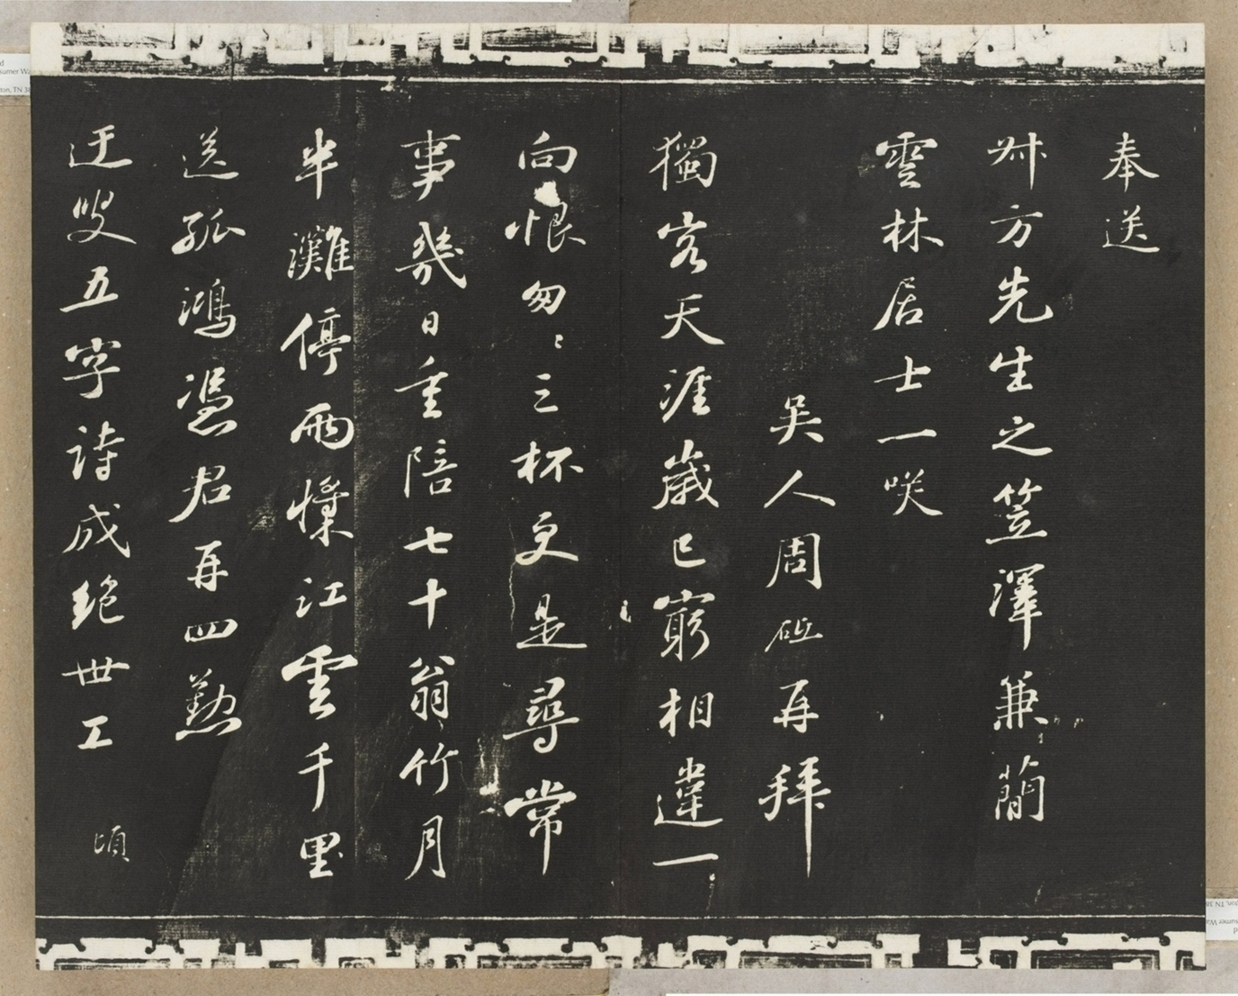 奉送
叔方先生之笠澤兼簡
雲林居士一咲
吳人周砥再拜
獨客天涯歲已窮相違一
向恨匆〻三杯更是尋常
事幾日重陪七十翁竹月
半灘停雨江雲千里
送孤鴻凴君再四懃
迂叟五字詩成絕世工
頃